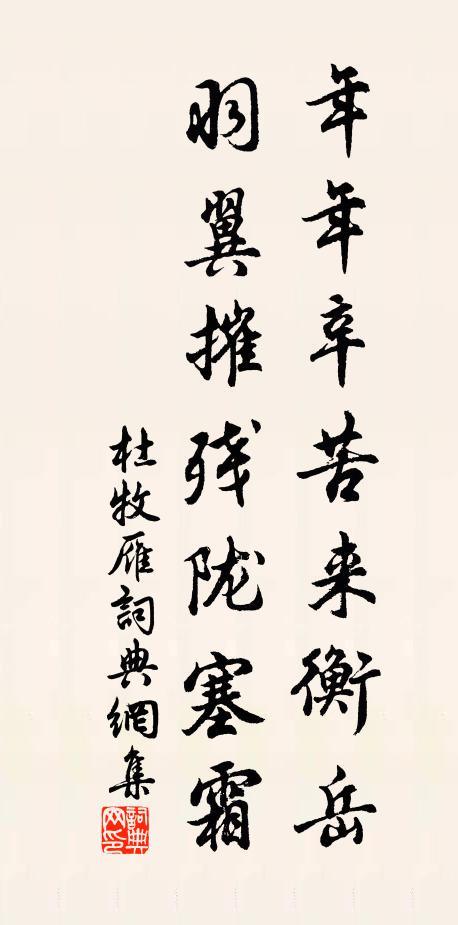 年年辛苦来衡岳
羽翼摧残陇塞霜
杜牧雁詞典網集
詞典网印